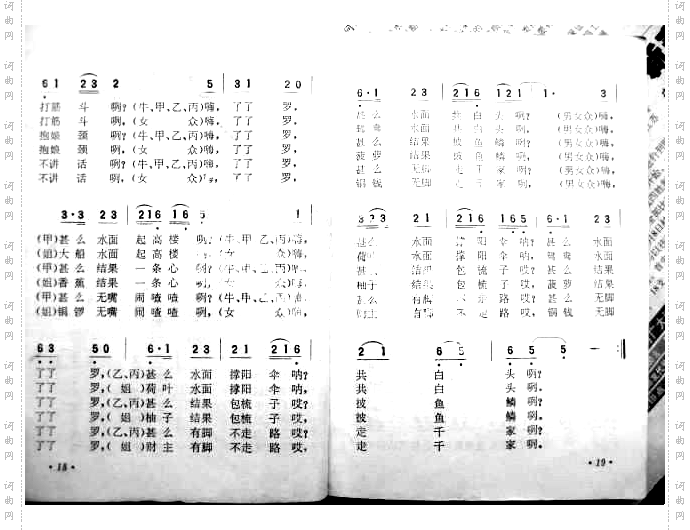 6 1 2 3 2 5 3 1 2 0
打筋 斗 咧?(牛、甲、乙、丙)嗨, 了了 罗,
打筋 斗 咧,(女 众)嗨, 了了 罗,
抱娘 颈 咧?(牛、甲、乙、丙)嗨, 了了 罗,
抱娘 颈 咧,(女 众)嗨, 了了 罗,
不讲 话 咧?(牛、甲、乙、丙)嗨, 了了 罗,
不讲 话 咧,(女 众)嗨, 了了 罗,
3·3 2 3 2 1 6 1 6 5
(甲)甚 么 水面 起 高 楼 咧?(牛、甲、乙、丙)嗨,
(姐)大 船 水面 起 高 楼 咧,(女 众)嗨,
(甲)甚 么 结果 一 条 心 咧?(牛、甲、乙、丙)嗨,
(姐)香 蕉 结果 一 条 心 咧,(女 众)嗨,
(甲)甚 么 无嘴 闹 喳 喳 咧?(牛、甲、乙、丙)嗨,
(姐)铜 锣 无嘴 闹 喳 喳 咧,(女 众)嗨,
6 3 5 0 6·1 2 3 2 1 2 1 6
了了 罗,(乙、丙)甚 么 水面 撑阳 伞 呐?
了了 罗,(姐)荷 叶 水面 撑阳 伞 呐,
了了 罗,(乙、丙)甚 么 结果 包梳 子 哎?
了了 罗,(姐)柚 子 结果 包梳 子 哎,
了了 罗,(乙、丙)甚 么 有脚 不走 路 哎?
了了 罗,(姐)财 主 有脚 不走 路 哎,
·18·
6·1 2 3 2 1 6 1 2 1 1· 3
甚 么 水面 共 白 头 咧? (男女众)嗨,
鸳 鸯 水面 共 白 头 咧, (男女众)嗨,
甚 么 结果 披 鱼 鳞 咧? (男女众)嗨,
菠 萝 结果 披 鱼 鳞 咧, (男女众)嗨,
甚 么 无脚 走 千 家 咧? (男女众)嗨,
铜 钱 无脚 走 千 家 咧, (男女众)嗨,
3 2 3 2 1 2 1 6 1 6 5 6·1 2 3
甚么 水面 撑 阳 伞 呐? 甚 么 水面
荷叶 水面 撑 阳 伞 呐, 鸳 鸯 水面
甚么 结果 包 梳 子 哎? 甚 么 结果
柚子 结果 包 梳 子 哎, 菠 萝 结果
甚么 有脚 不 走 路 哎? 甚 么 无脚
财主 有脚 不 走 路 哎, 铜 钱 无脚
2 1 6 5 6 5 5 —
共 白 头 咧?
共 白 头 咧。
披 鱼 鳞 咧?
披 鱼 鳞 咧。
走 千 家 咧?
走 千 家 咧。
·19·
词曲网